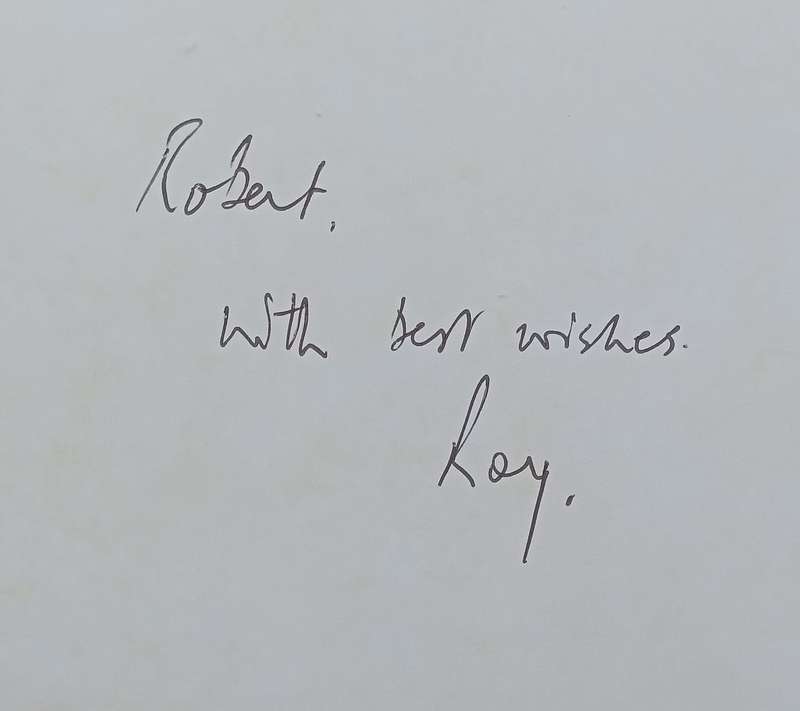 Robert,
with best wishes.
Roy.